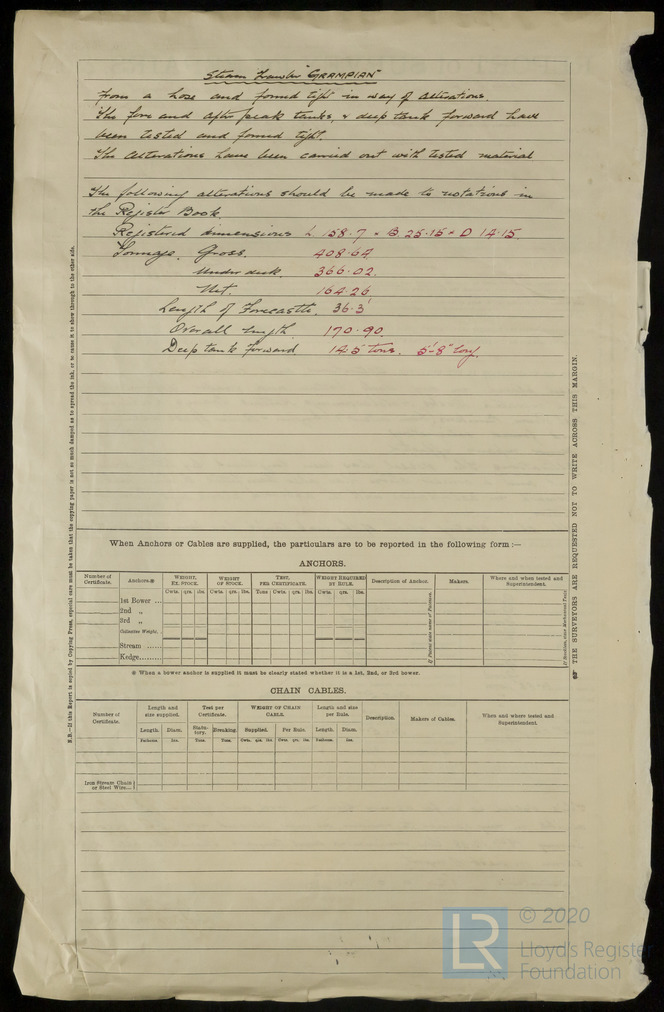 Steam Trawler "GRAMPIAN"
from a hose and found tight in way of alterations.
The fore and after peak tanks, & deep tank forward have
been tested and found tight.
The alterations have been carried out with tested material
The following alterations should be made to notations in
the Register Book.
Registered dimensions L 158.7 × B 25.15 × D 14.15.
Tonnage. Gross. 408.64
Under deck. 366.02.
Net. 164.26
Length of Forecastle. 36.3'
Overall length 170.90
Deep tank forward 14.5 tons. 5'-8" long.
When Anchors or Cables are supplied, the particulars are to be reported in the following form :—
ANCHORS.
Number of Certificate. Anchors.* WEIGHT, EX. STOCK. WEIGHT OF STOCK. TEST, PER CERTIFICATE. WEIGHT REQUIRED BY RULE. Description of Anchor. Makers. Where and when tested and Superintendent.
Cwts. qrs. lbs. Cwts. qrs. lbs. Tons Cwts. qrs. lbs. Cwts. qrs. lbs.
1st Bower ...
2nd „
3rd „
Collective Weight.
Stream ......
Kedge........
* When a bower anchor is supplied it must be clearly stated whether it is a 1st, 2nd, or 3rd bower.
CHAIN CABLES.
Number of Certificate. Length and size supplied. Test per Certificate. WEIGHT OF CHAIN CABLE. Length and size per Rule. Description. Makers of Cables. Where and where tested and Superintendent.
Length. Diam. Statutory. Breaking. Supplied. Per Rule. Length. Diam.
Fathoms. Ins. Tons. Tons. Cwts. qrs. lbs. Cwts. qrs. lbs. Fathoms. Ins.
Iron Stream Chain
or Steel Wire...
N.B.—If this Report is copied by Copying Press, especial care must be taken that the copying paper is not so much damped as to spread the ink, or to cause it to show through to the other side.
THE SURVEYORS ARE REQUESTED NOT TO WRITE ACROSS THIS MARGIN.
LR
© 2020
Lloyd's Register
Foundation